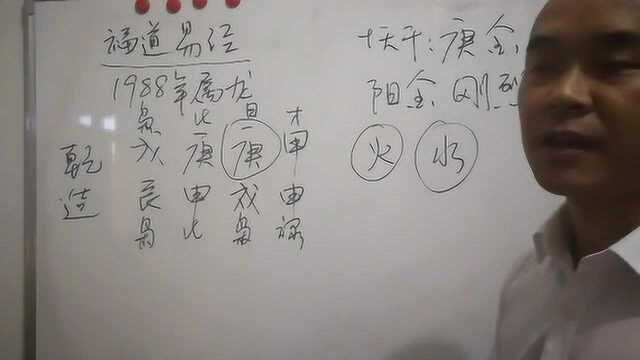 福道易经
1988年属龙
枭 比 日 才
乾造
戊 庚 庚 甲
辰 申 戌 申
枭 比 枭 禄
十天干:庚金,
阳金 刚烈
火 水